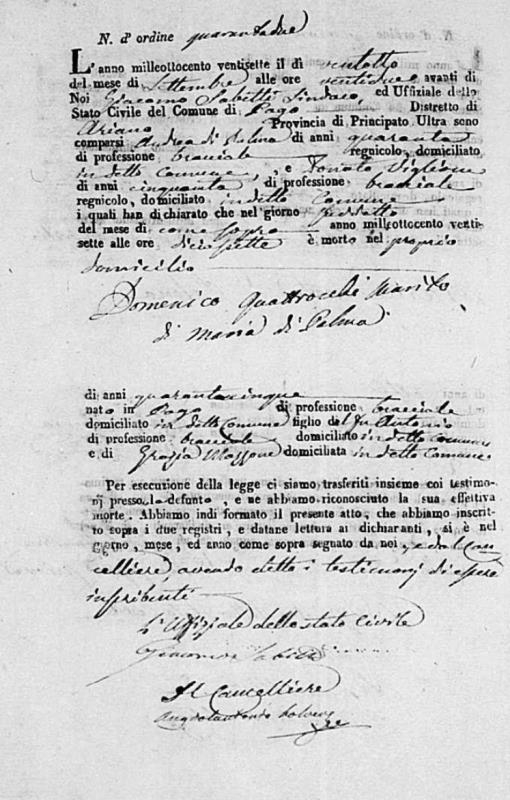 N. d'ordine quarantadue
L'anno milleottocento ventisette il dì ventotto
del mese di Settembre alle ore ventidue avanti di
Noi Giacomo Sabetti Sindaco ed Uffiziale dello
Stato Civile del Comune di Pago Distretto di
Ariano Provincia di Principato Ultra sono
comparsi Andrea di Palma di anni quaranta
di professione bracciale regnicolo, domiciliato
in detto Comune, , e Donato Viglione
di anni cinquanta di professione bracciale
regnicolo, domiciliato in detto Comune
i quali han dichiarato che nel giorno
del mese di come sopra anno milleottocento venti-
sette alle ore diciasette è morto nel proprio
domicilio
Domenico Quattrocchi Marito
di Maria di Palma
di anni quarantacinque
nato in Pago di professione bracciale
domiciliato in detto Comune figlio del fu Antonio
di professione bracciale domiciliato in detto Comune
e di Grazia domiciliata in detto Comune
Per esecuzione della legge ci siamo trasferiti insieme coi testimo-
nj presso lo defunto, e ne abbiamo riconosciuto la sua effettiva
morte. Abbiamo indi formato il presente atto, che abbiamo inscrit-
to sopra i due registri, e datane lettura ai dichiaranti, si è nel
giorno, mese, ed anno come sopra segnato da noi, e dal Can-
celliere, avendo detto i testimonj di essere
L'Uffiziale dello stato Civile
Giacomo Sabetti
Il Cancelliere